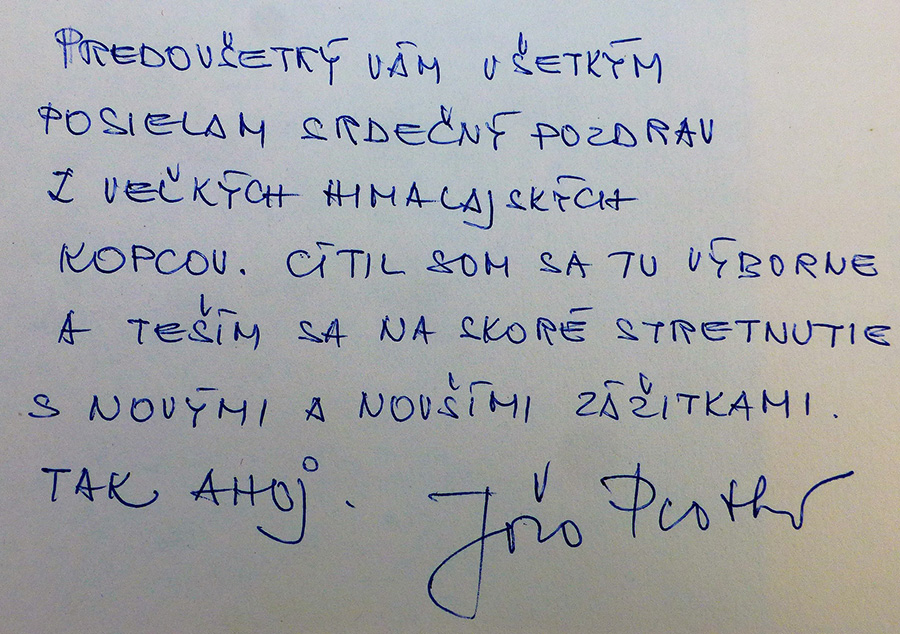 PREDOVŠETKÝM VÁM VŠETKÝM
POSIELAM SRDEČNÝ POZDRAV
Z VEČKÝCH HIMALAJSKÝCH
KOPCOV. CÍTIL SOM SA TU VÝBORNE
A TEŠÍM SA NA SKORÉ STRETNUTIE
S NOVÝMI A NOVŠÍMI ZÁŽITKAMI.
TAK AHOJ. Jožo